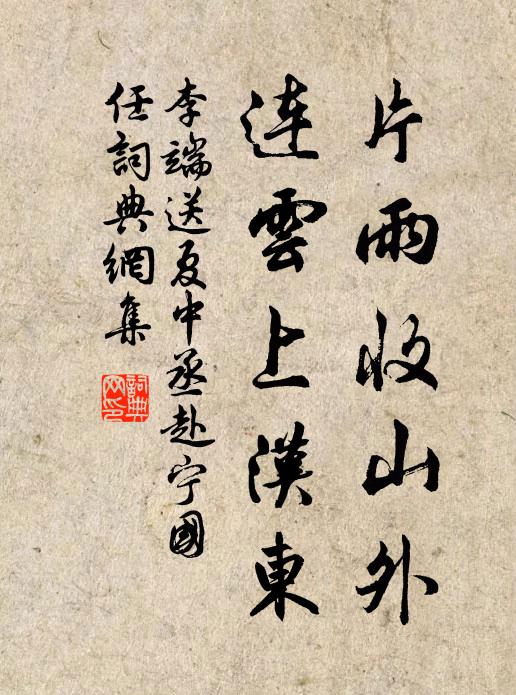 片雨收山外
連雲上漢東
李端送夏中丞赴宁國
任詞典網集
詞典
网印